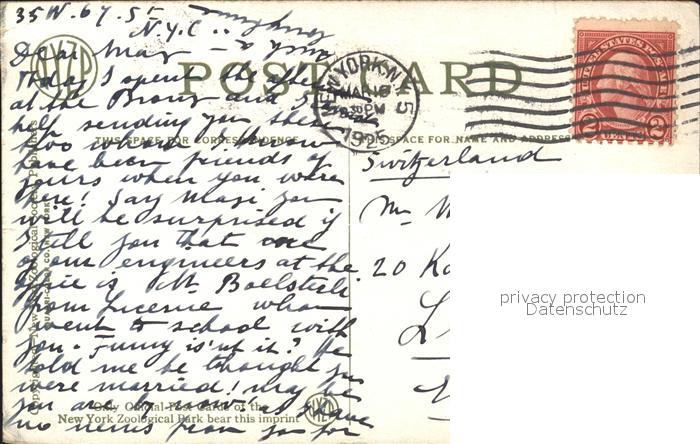 35 W. 67. St
N.Y.C.
Dear Max
Today I spent the after
at the Bronx and
help sending you these
two
have been friends of
yours when you were
here! Say Maxi you
will be surprised if
I tell you that one
of our engineers at the
office is Mr. Boelsterli
from Lucerne who
went to school with
you. Funny isn't it? He
told me he thought you
were married! May be
you are by now. as I have
no news from you for
POST CARD
THIS SPACE FOR CORRESPONDENCE
THIS SPACE FOR NAME AND ADDRESS
NEW YORK, N.Y.
MAR 18
PM
1925
5
UNITED STATES POSTAGE
2 CENTS 2
Switzerland
Mr
20
privacy protection
Datenschutz
Only Official Post Cards of the
New York Zoological Park bear this imprint
NYZP
NYZP